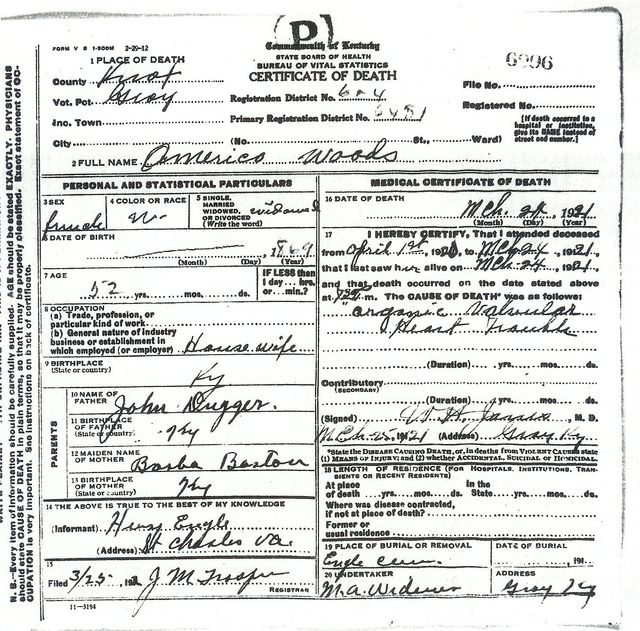 P
FORM V S 1-500M 2-29-12
Commonwealth of Kentucky
STATE BOARD OF HEALTH
BUREAU OF VITAL STATISTICS
CERTIFICATE OF DEATH
6996
1 PLACE OF DEATH
County Knox
Vot. Pct. Gray
Inc. Town
City
Registration District No. 604
Primary Registration District No. 6481
(No. St., Ward)
File No.
Registered No.
[If death occurred in a hospital or institution, give its NAME instead of street and number.]
2 FULL NAME Americo Woods
PERSONAL AND STATISTICAL PARTICULARS
3 SEX
female
4 COLOR OR RACE
W
5 SINGLE, MARRIED WIDOWED, OR DIVORCED (Write the word) widowed
6 DATE OF BIRTH
1869
(Month) (Day) (Year)
7 AGE
52 yrs. mos. ds.
IF LESS than 1 day.... hrs. or.... min.?
8 OCCUPATION
(a) Trade, profession, or particular kind of work
(b) General nature of industry business or establishment in which employed (or employer) House wife
9 BIRTHPLACE
(State or country)
Ky
PARENTS
10 NAME OF FATHER John Dugger.
11 BIRTHPLACE OF FATHER (State or country) Ky
12 MAIDEN NAME OF MOTHER
13 BIRTHPLACE OF MOTHER (State or country) Ky
14 THE ABOVE IS TRUE TO THE BEST OF MY KNOWLEDGE
(Informant) Henry Engle
(Address) St Charles Va.
15
Filed 3/25, 192 J. M. Trosper
REGISTRAR
11-3184
MEDICAL CERTIFICATE OF DEATH
16 DATE OF DEATH
Mch. 24, 1921
(Month) (Day) (Year)
17 I HEREBY CERTIFY, That I attended deceased
from April 1st, 1920, to Mch 24, 1921,
that I last saw her alive on Mch 24, 1921,
and that death occurred on the date stated above
at m. The CAUSE OF DEATH* was as follows:
organic Valvular
Heart Trouble
(Duration) yrs. mos. ds.
Contributory
(SECONDARY)
(Duration) yrs. mos. ds.
(Signed) M. D.
Mch 25, 1921 (Address) Gray Ky
*State the DISEASE CAUSING DEATH, or, in deaths from VIOLENT CAUSES state
(1) MEANS OF INJURY; and (2) whether ACCIDENTAL, SUICIDAL or HOMICIDAL.
18 LENGTH OF RESIDENCE (FOR HOSPITALS, INSTITUTIONS, TRANSIENTS OR RECENT RESIDENTS)
At place of death yrs. mos. ds. In the State yrs. mos. ds.
Where was disease contracted, if not at place of death?
Former or usual residence
19 PLACE OF BURIAL OR REMOVAL
Engle cem.
DATE OF BURIAL
191
20 UNDERTAKER
M. A. Widener
ADDRESS
Gray Ky
N. B.—Every item of information should be carefully supplied. AGE should be stated EXACTLY. PHYSICIANS
should state CAUSE OF DEATH in plain terms, so that it may be properly classified. Exact statement of OC-
CUPATION is very important. See instructions on back of certificate.